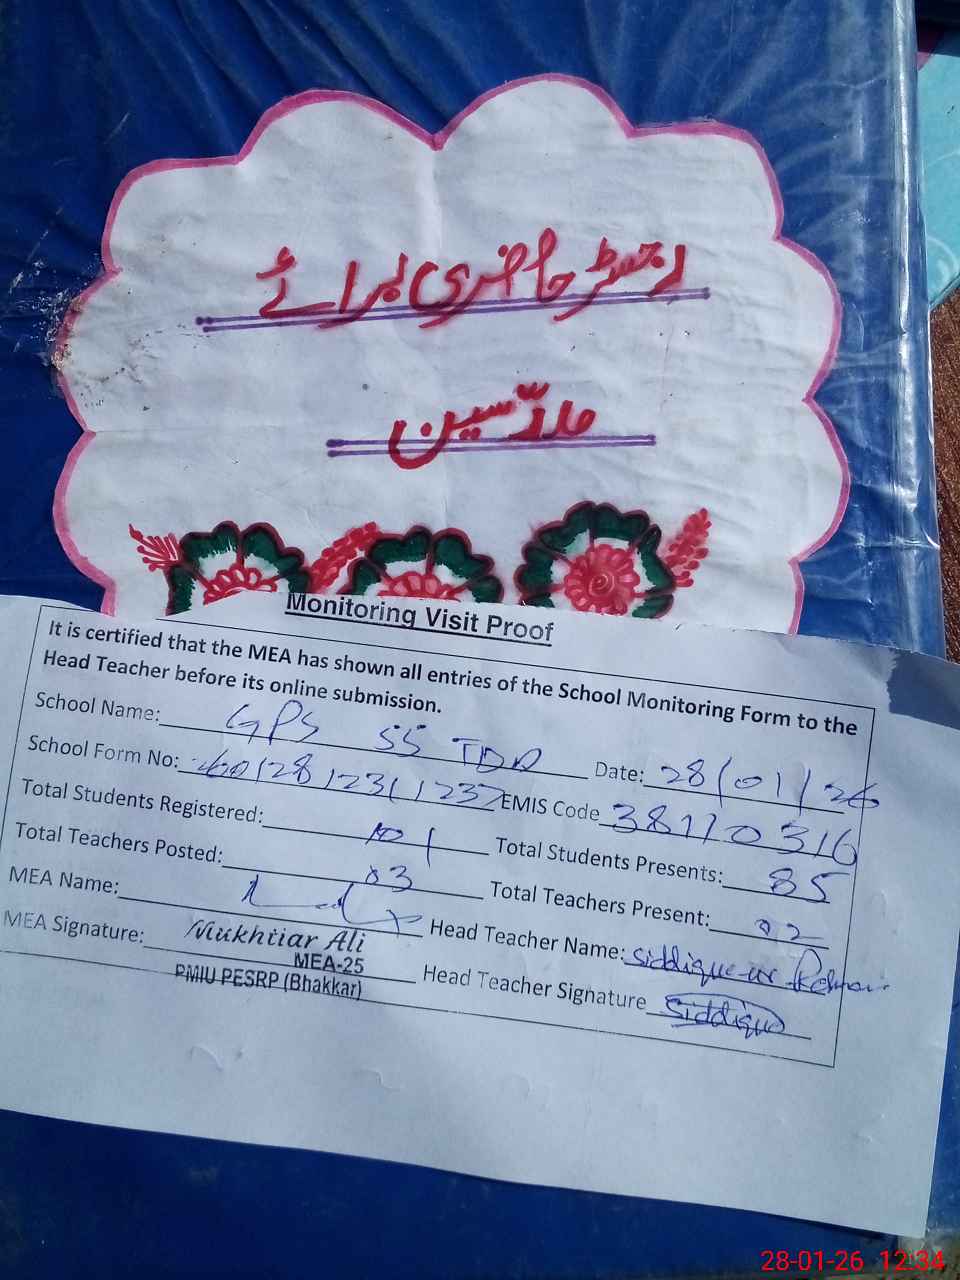 رجسٹر حاضری برائے
مدرّسین
Monitoring Visit Proof
It is certified that the MEA has shown all entries of the School Monitoring Form to the
Head Teacher before its online submission.
School Name: GPS 55 TDA Date: 28/01/26
School Form No: EMIS Code 38110316
Total Students Registered: 101 Total Students Presents: 85
Total Teachers Posted: 03 Total Teachers Present: 02
MEA Name: Head Teacher Name: Siddique ur Rehman
MEA Signature: Mukhtiar Ali Head Teacher Signature Siddique
MEA-25
PMIU PESRP (Bhakkar)
28-01-26 12:34